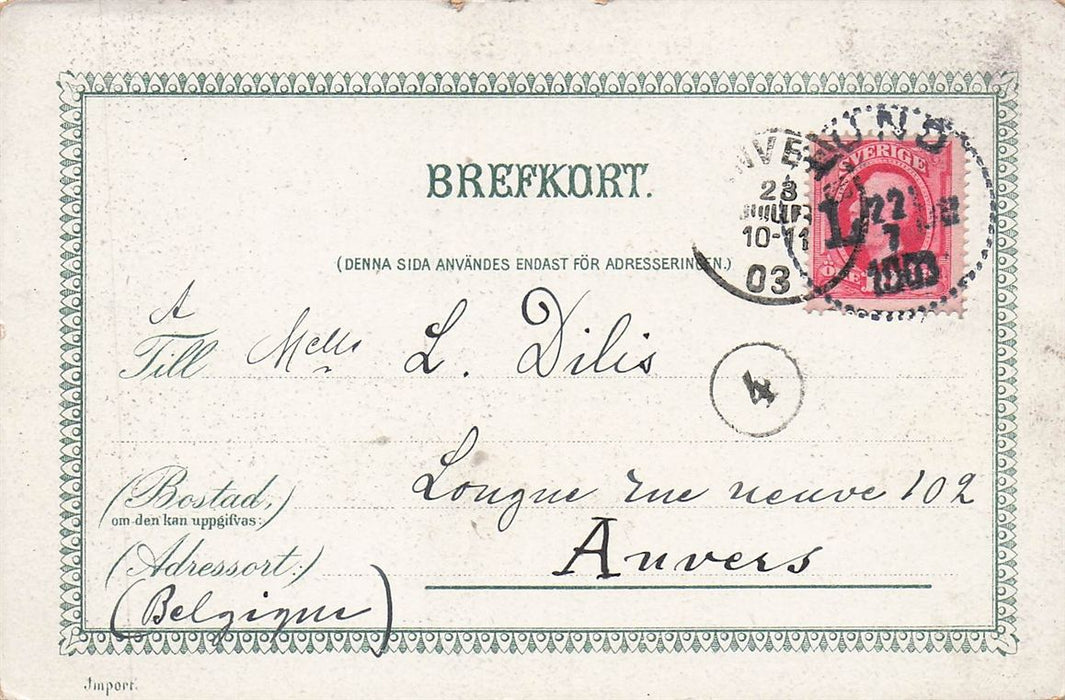 BREFKORT.
(DENNA SIDA ANVÄNDES ENDAST FÖR ADRESSERINGEN.)
SVERIGE
ÖRE
LUND
L
22
7
1903
NVE
23
JUILL
10-11
03
A
Till Melle L. Dilis
4
(Bostad,) Longue rue neuve 102
om den kan uppgifvas:
(Adressort:) Anvers
(Belgique)
Import.